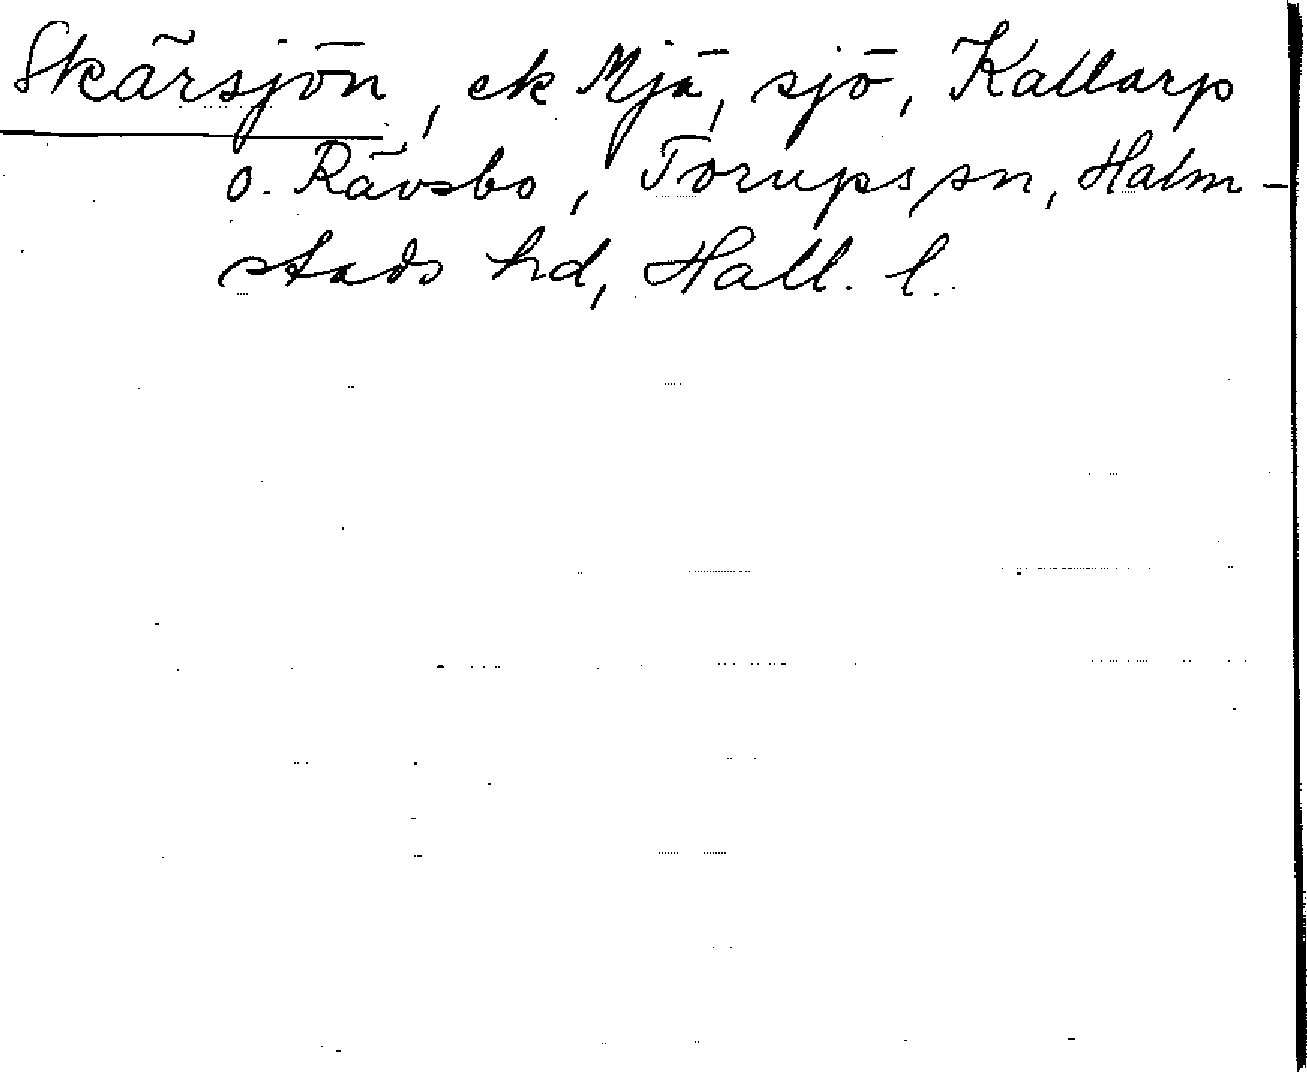 Skärsjön, ek Mjä, sjö, Kallarp
o. Rävsbo, Torups sn, Halm-
stads hd, Hall. l.